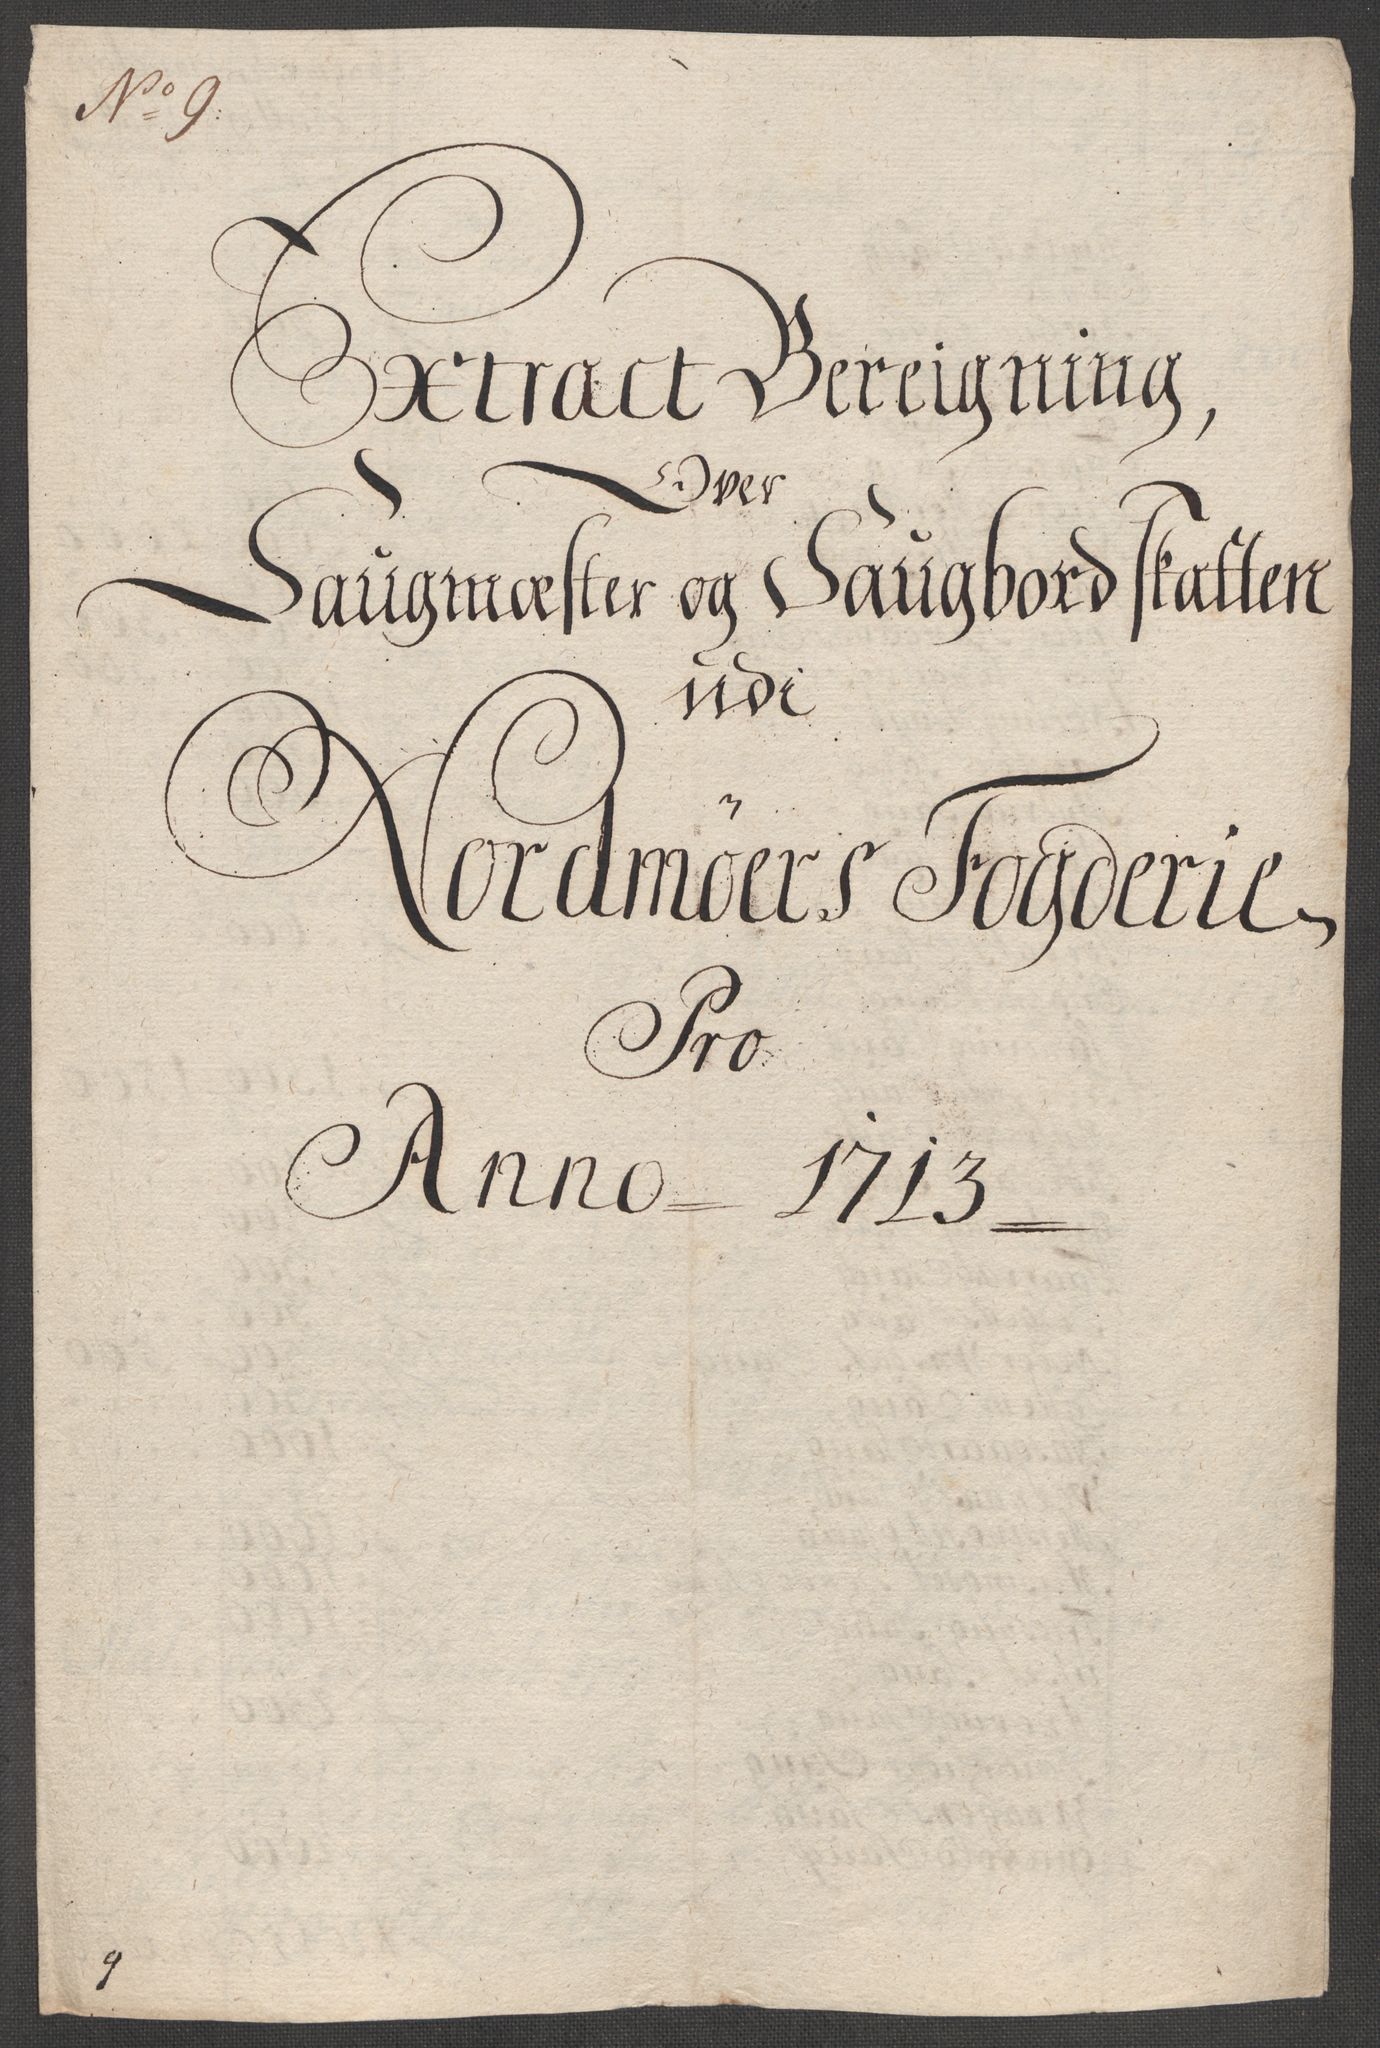 No 9.
Extract Bereigning,
Over
Saugmæster og Saugbord skatten
udi
Nordmöers Fogderie,
Pro
Anno 1713
9